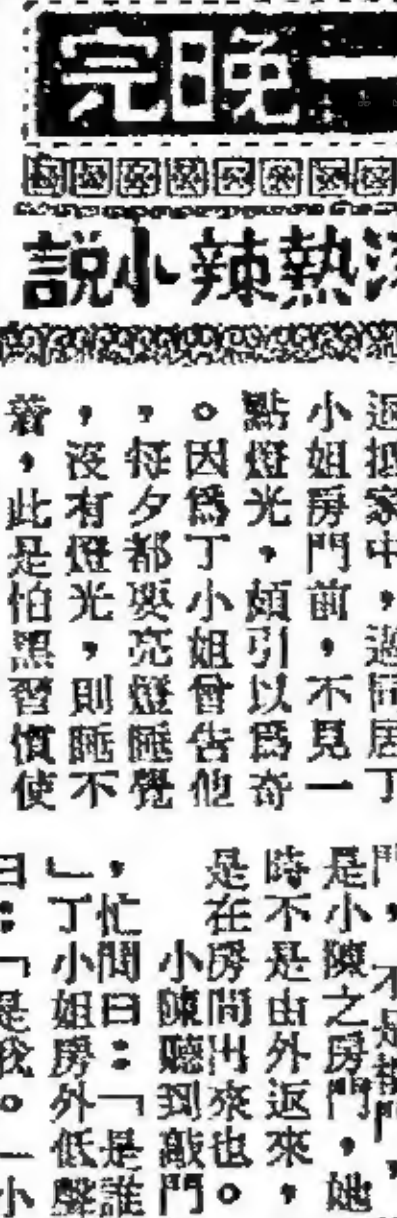 一晚完
熱辣小說
返抵家中，過同居丁
小姐房門前，不見一
點燈光，頗引以爲奇
。因爲丁小姐曾告他
，每夕都要亮燈睡覺
，沒有燈光，則睡不
着，此是怕黑習慣使
門，不是
是小陳之房門，她
時不是由外返來，
是在房間出來也。
小陳聽到敲門
，忙問曰：「是誰
」丁小姐房外低聲
曰：「是我。」小